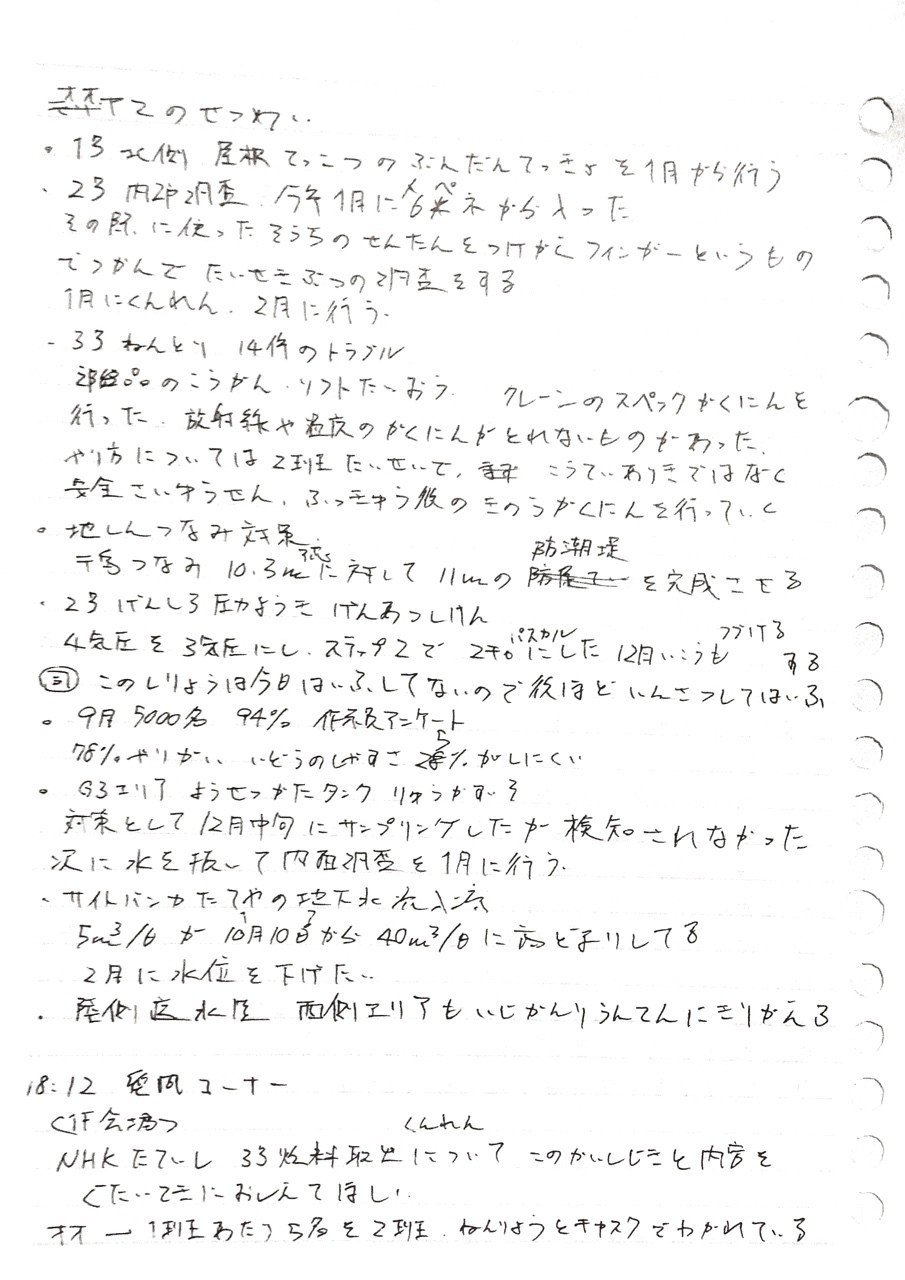 せつめい
・1号 北側 屋根 てっこつの ぶんだんてっきょを1月から行う
・2号 内部調査. 今年1月に X-6ペネから入った
その際に使ったそうちのせんたんをつけかえ フィンガーというもの
でつかんで たいせきぶつの調査をする
1月にくんれん. 2月に行う.
・3号 ねんとり 14件のトラブル
部品のこうかん. ソフトたいおう. クレーンのスペックかくにんを
行った. 放射線や温度のかくにんがとれないものがあった.
やり方については 2班 たいせいで, こうていありきではなく
安全さいゆうせん, ふっきゅう後の きのうかくにんを行っていく
・地しんつなみ対策.
千島つなみ 10.3m に対して 11mの 防潮堤 を完成させる
・2号 げんしろ圧力ようき げんあつしけん
4気圧を3気圧にし, ステップ2で 2キロパスカルにした 12月いこうも つづける
する
このしりょうは今日はいふしてないので後ほど いんさつしてはいふ
・9月 5000名 94% 作業員アンケート
78% やりがい いどうのしやすさ % がしにくい
・G3エリア ようせつがたタンク りゅうかすいそ
対策として12月中旬にサンプリングしたが検知されなかった
次に水を抜いて内面調査を1月に行う.
・サイトバンカたてやの地下水流入
5m³/日 が 10月10日から 40m³/日に
2月に水位を下げたい
・陸側遮水壁 西側エリアも いじかんりうんてんにきりかえる
18:12 質問コーナー
<1F会場>
NHK たていし 3号燃料取出くんれんについて このかいしじきと内容を
ぐたいてきにおしえてほしい.
1班あたり5名を2班. ねんりょうとキャスクでわかれている